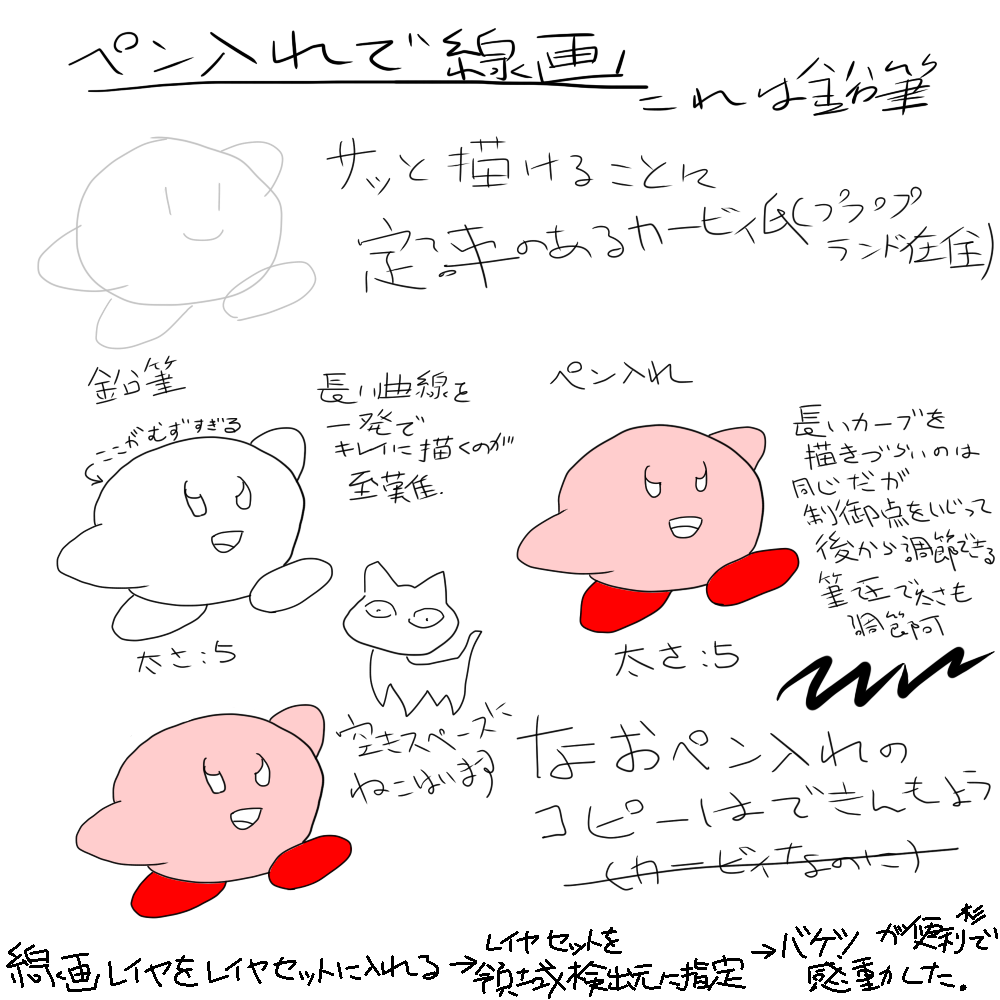 ペン入れで線画
これは鉛筆
サッと描けることに
定評のあるカービィ氏(ププップ
ランド在住)
鉛筆
ここがむずすぎる
長い曲線を
一発で
キレイに描くのが
至難.
太さ:5
ペン入れ
長いカーブを
描きづらいのは
同じだが
制御点をいじって
後から調節できる
筆圧で太さも
調節可
太さ:5
空きスペースに
ねこはいます
なおペン入れの
コピーはできんもよう
(カービィなのに)
線画レイヤをレイヤセットに入れる→
レイヤセットを
領域検出元に指定
→バケツが便利
で
感動した。